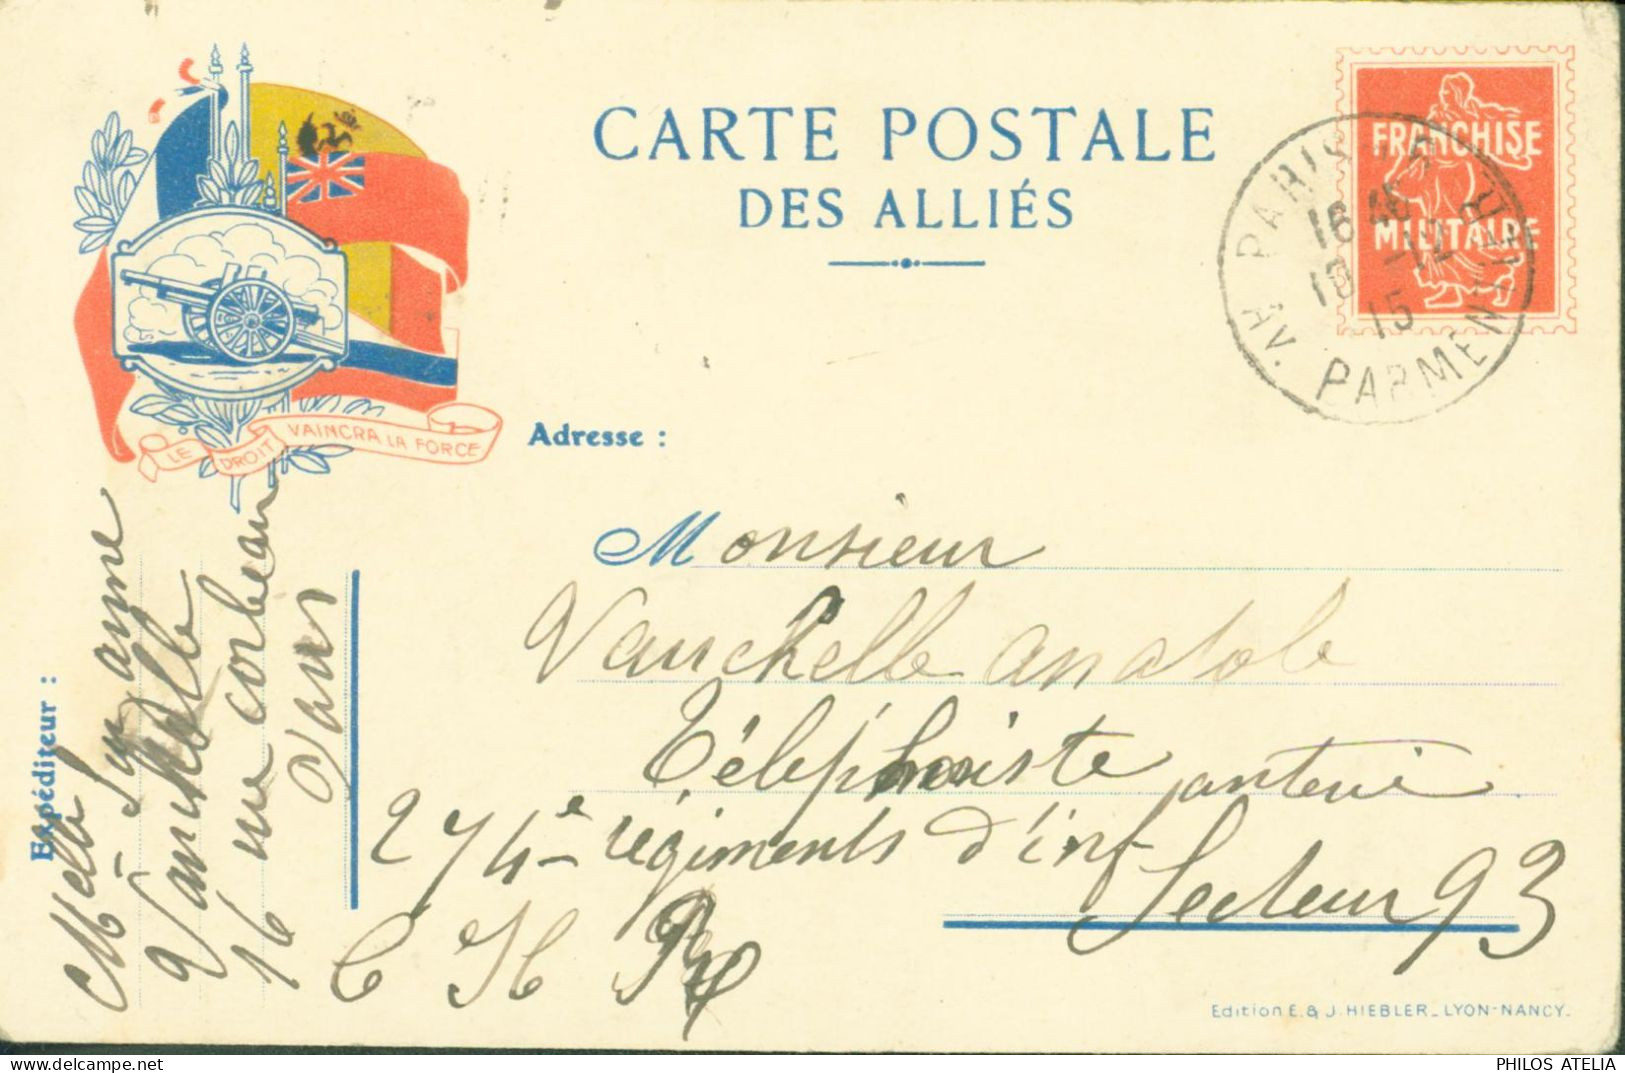 CARTE POSTALE
DES ALLIÉS
FRANCHISE
MILITAIRE
PARIS
16 40
10 -12
15
AV. PARMENTIER
LE DROIT VAINCRA LA FORCE
Adresse :
Monsieur
Vauchelle anatole
Téléphoniste
274e régiments d'inf
C H R
Secteur 93
Expéditeur :
Melle
Vauchelle
16 rue corbeau
Paris
Edition E. & J. HIEBLER_LYON-NANCY.
PHILOS ATELIA